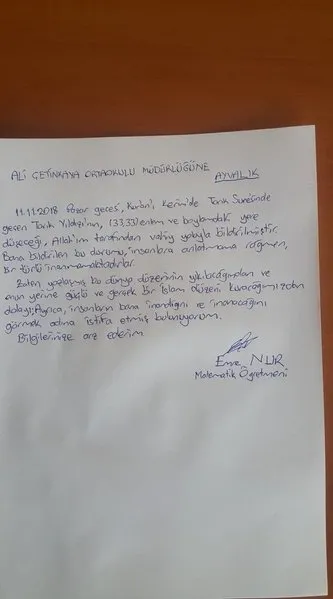 ALİ ÇETİNKAYA ORTAOKULU MÜDÜRLÜĞÜNE
AYVALIK
11.11.2018 Pazar gecesi, Kur'an'ı Kerim'de Tarık Suresinde
geçen Tarık Yıldızı'nın, (33,33) enlem ve boylamdaki yere
düşeceği, Allah'ım tarafından vahiy yoluyla bildirilmiştir.
Bana bildirilen bu durumu, insanlara anlatmama rağmen,
bir türlü inanmamaktadırlar.
Zaten yozlaşmış bu dünya düzeninin yıkılacağından ve
onun yerine güçlü ve gerçek bir İslam düzeni kuracağımızdan
dolayı; Ayrıca, insanların bana inandığını ve inanacağını
görmek adına istifa etmiş bulunuyorum.
Bilgilerinize arz ederim
Emre NUR
Matematik Öğretmeni